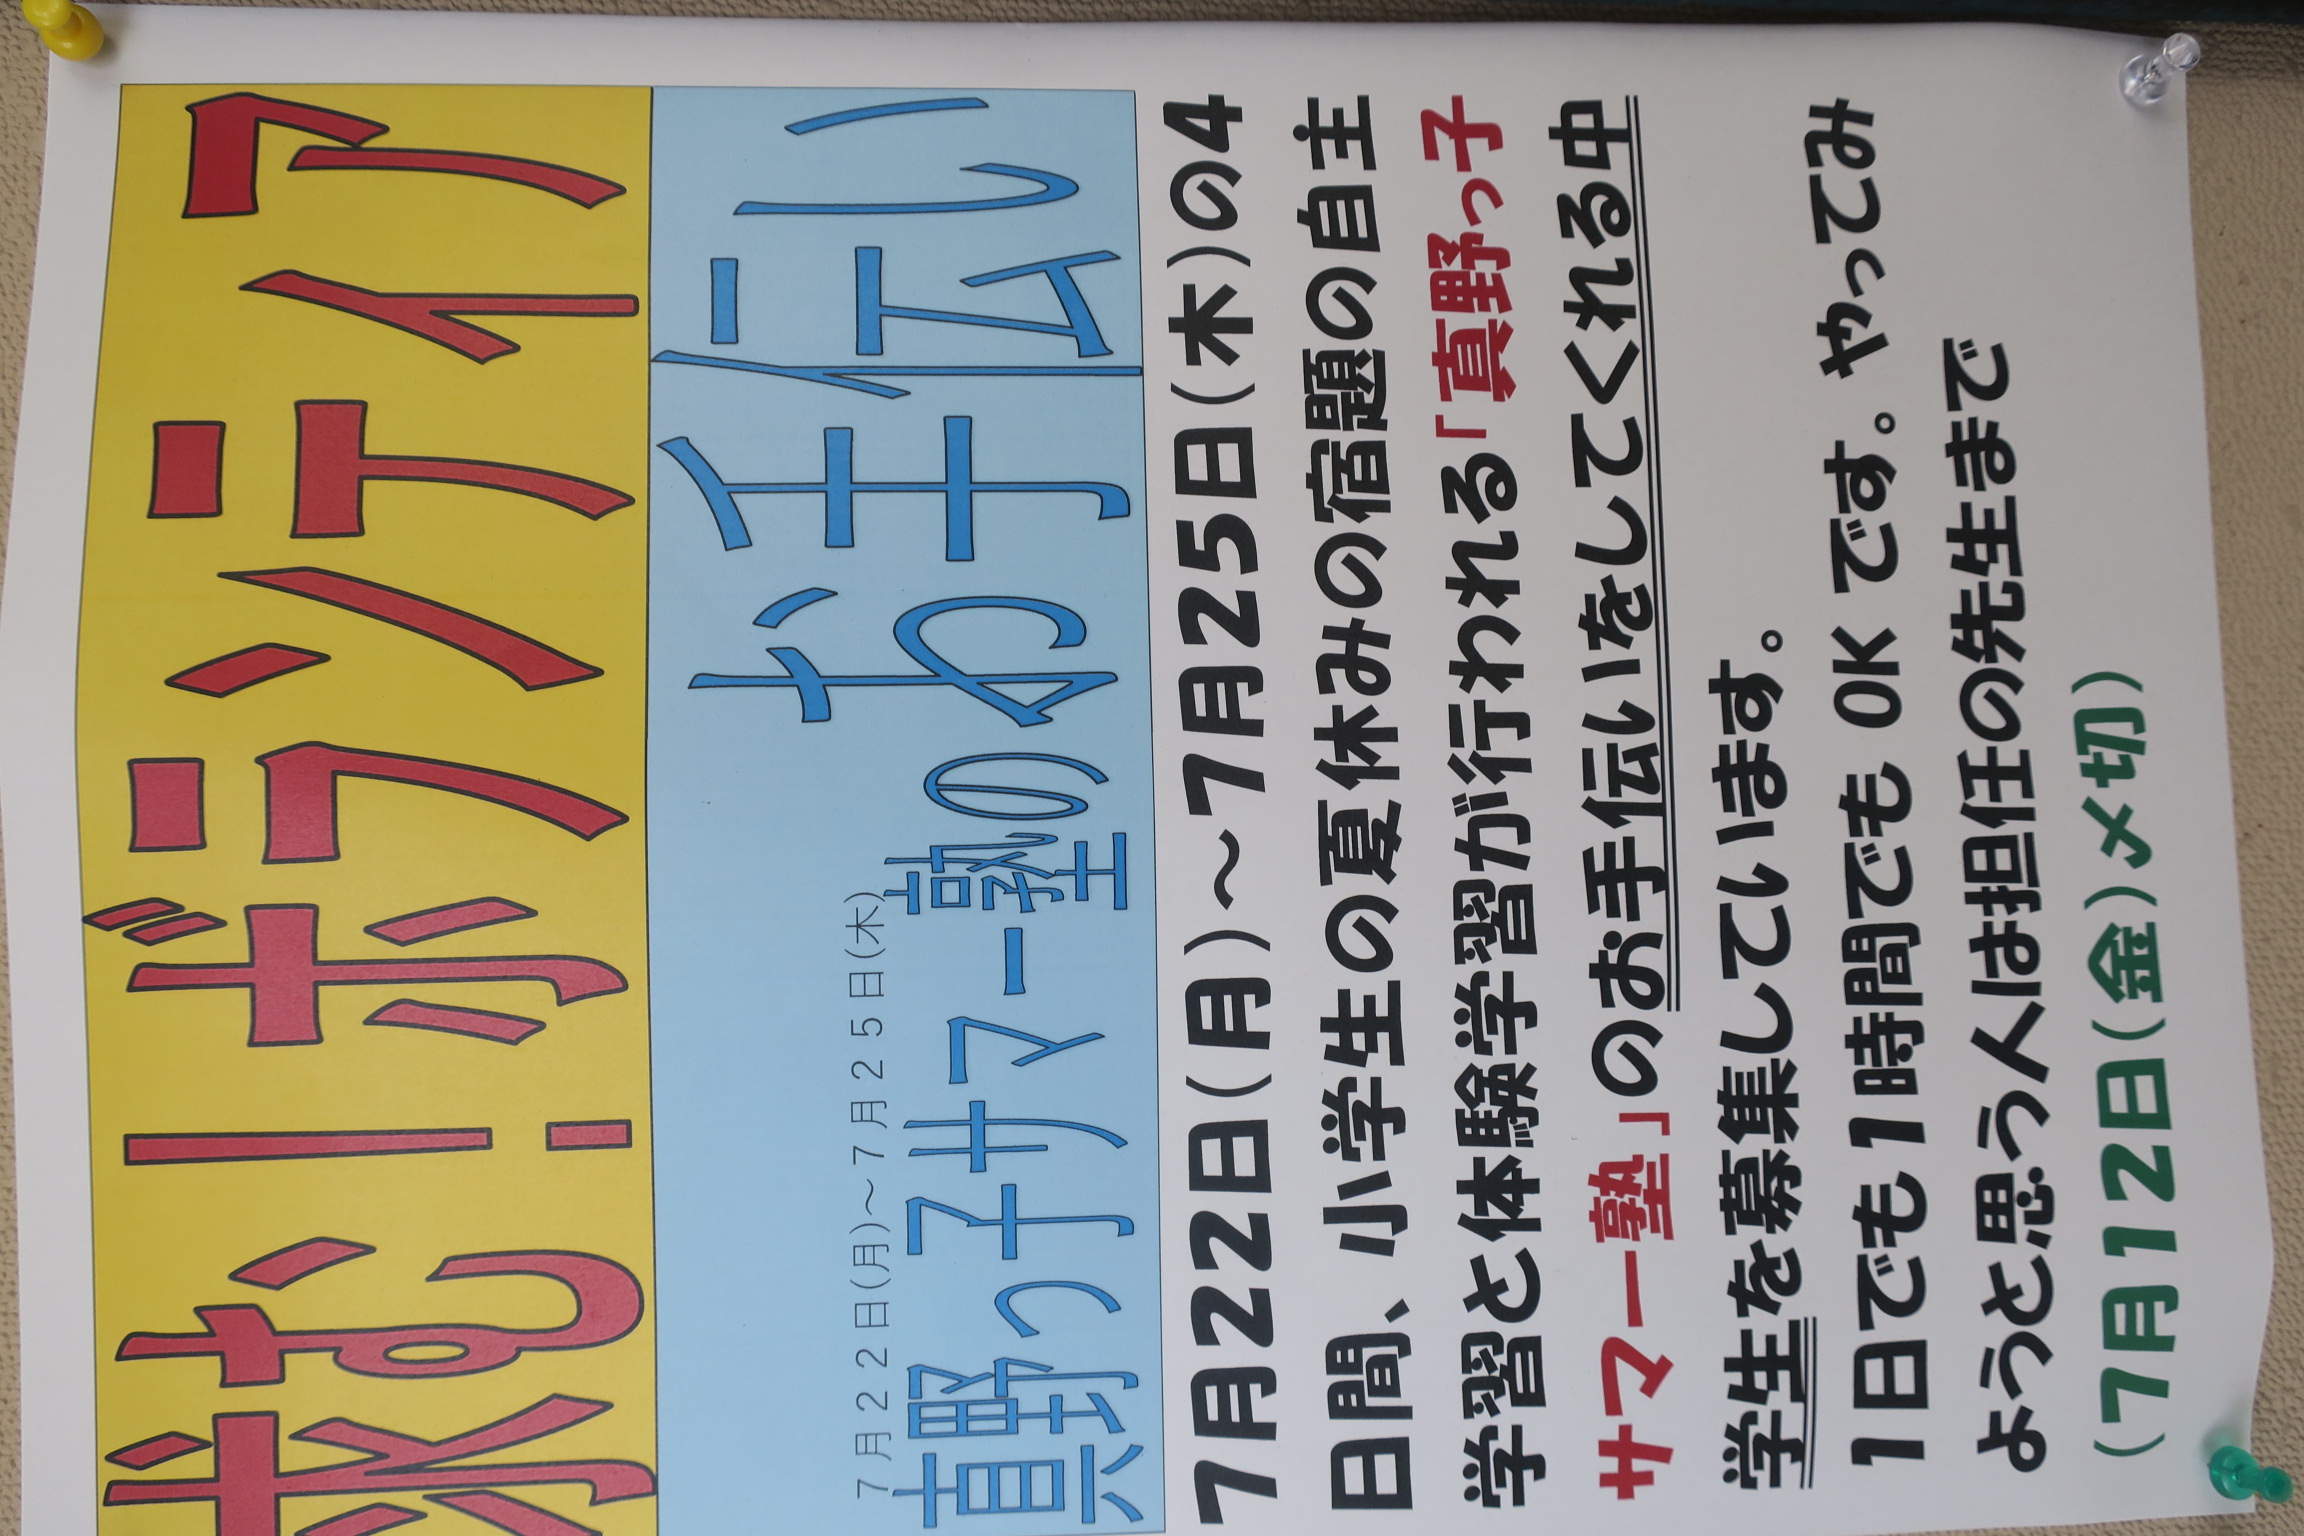 求む!ボランティア
7月22日(月)~7月25日(木)
真野っ子サマー塾のお手伝い
7月22日(月)~7月25日(木)の4
日間、小学生の夏休みの宿題の自主
学習と体験学習が行われる「真野っ子
サマー塾」のお手伝いをしてくれる中
学生を募集しています。
1日でも1時間でも OK です。やってみ
ようと思う人は担任の先生まで
(7月12日(金)〆切)